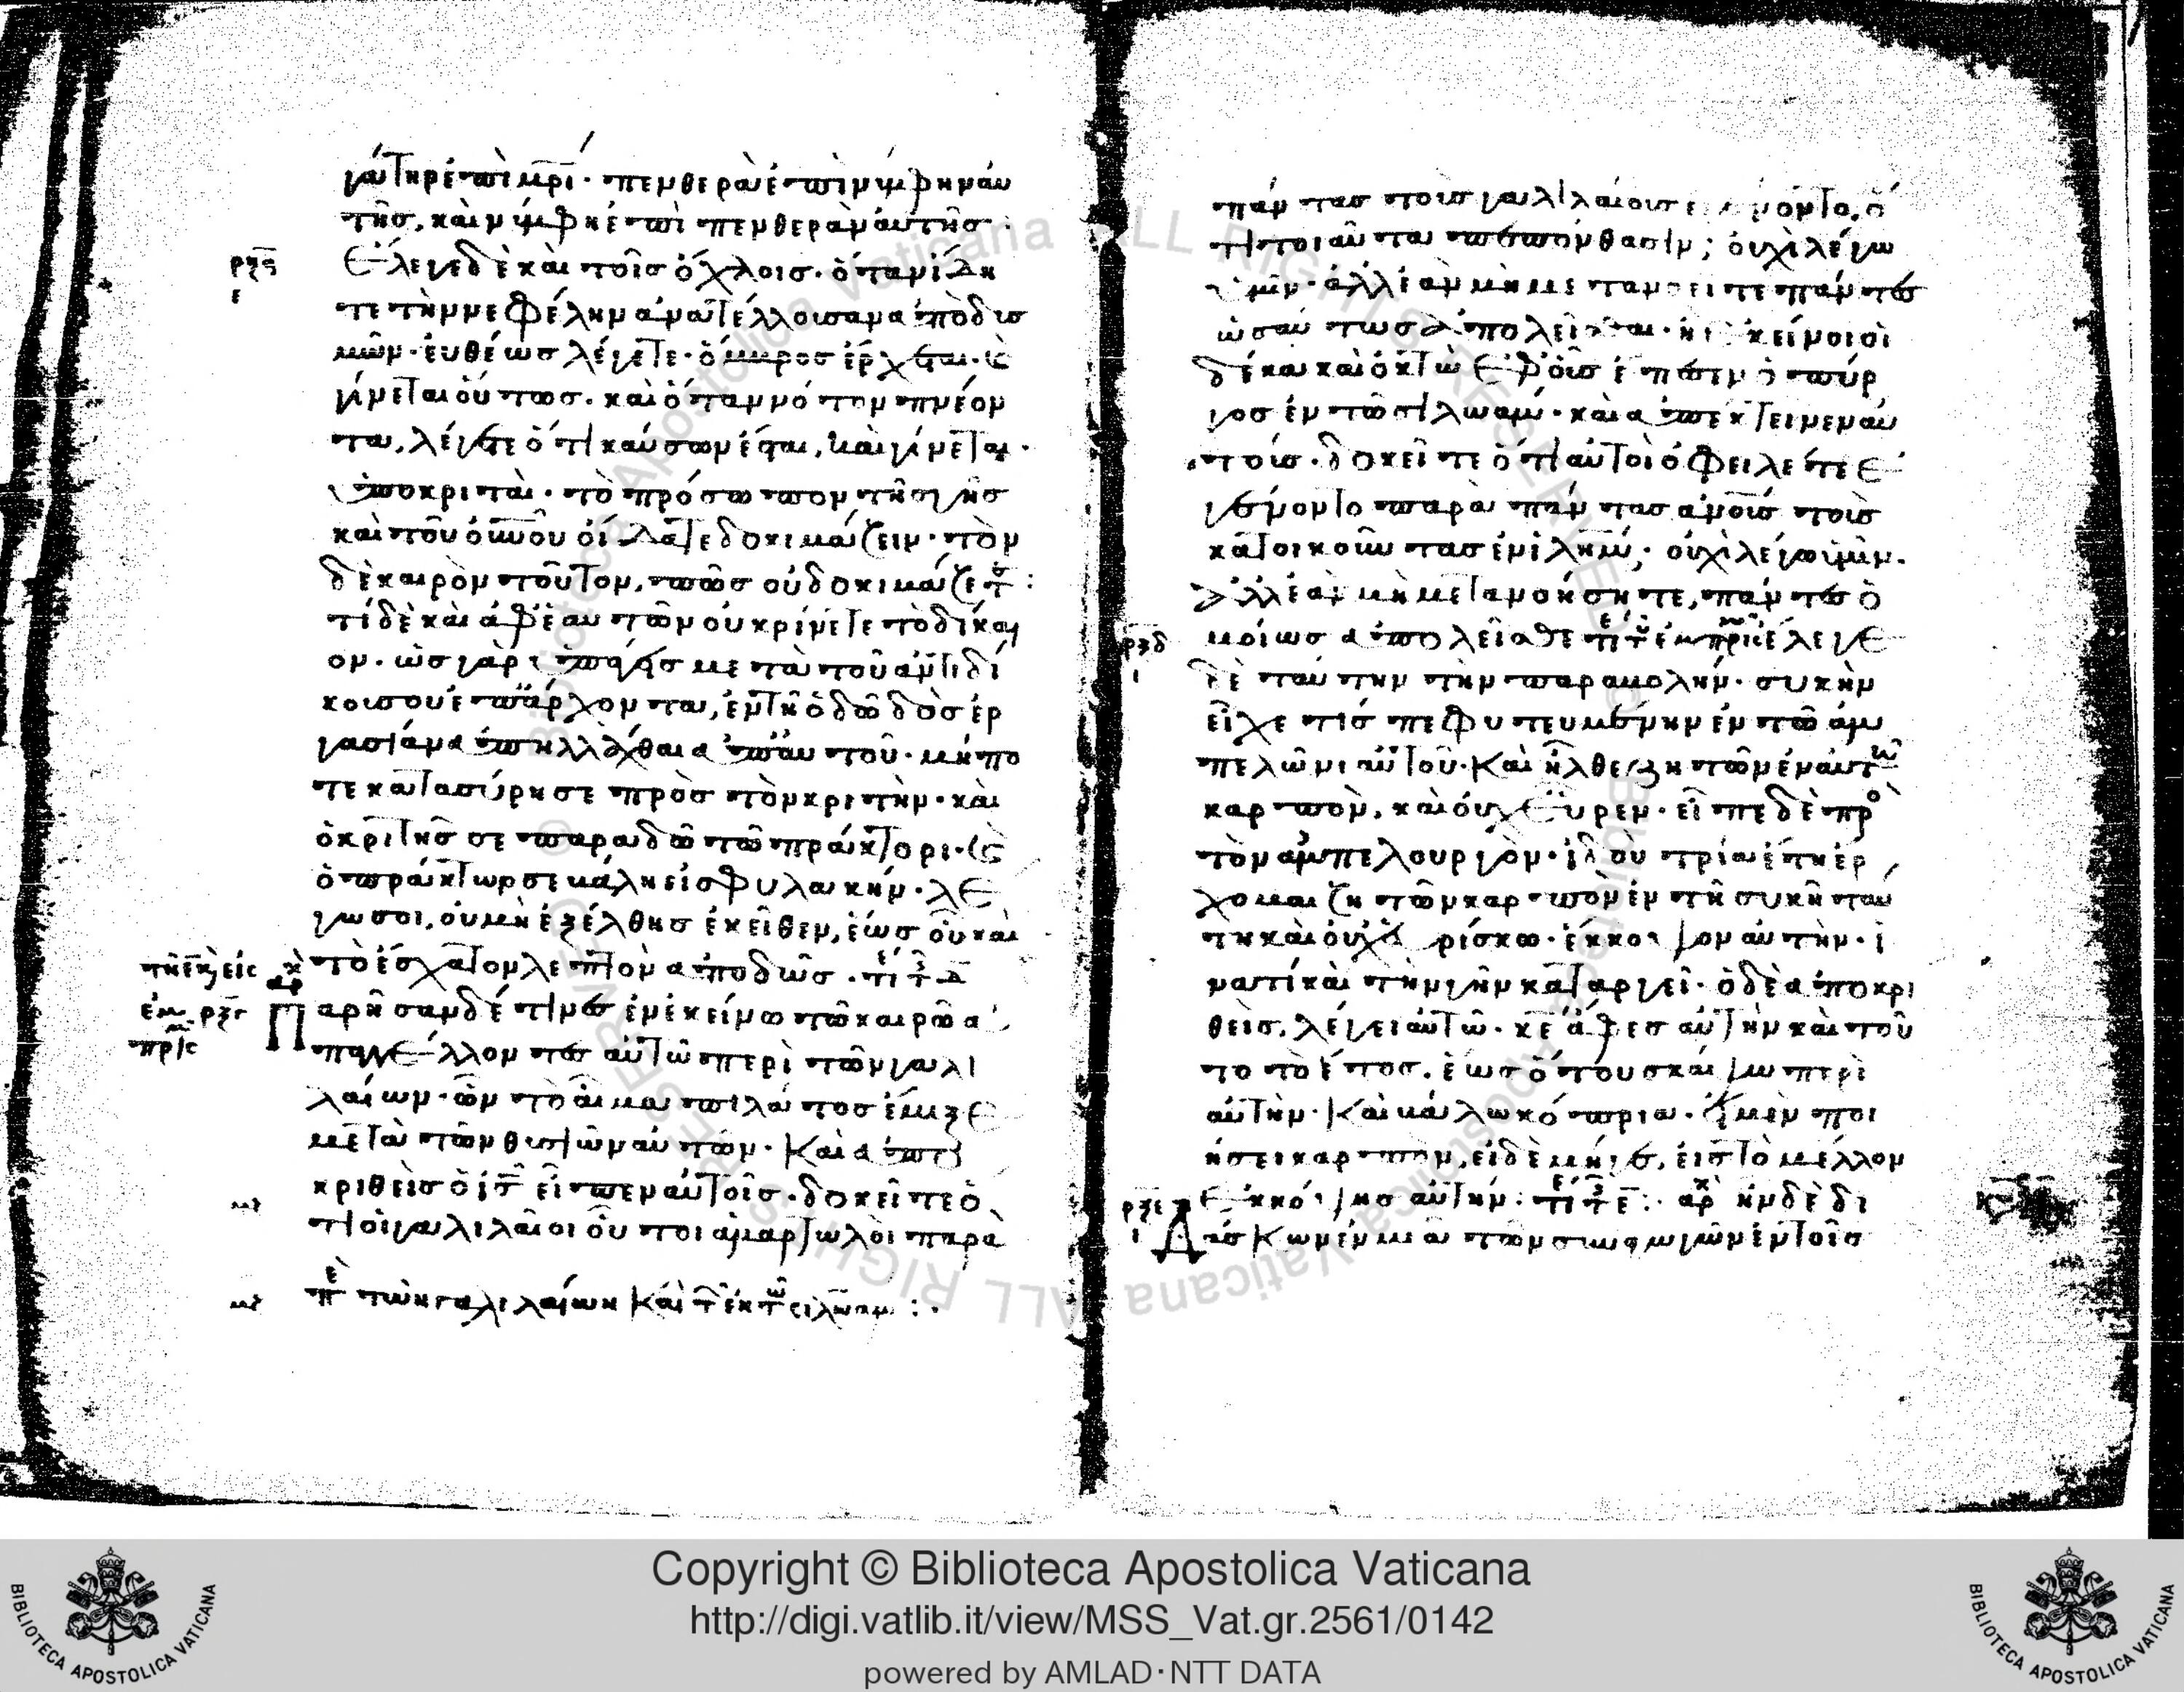 γάτηρ ἐπὶ μρί· πενθερὰ ἐπὶ νύμφην αὐ
τῆσ, καὶ νύμφη ἐπὶ πενθερὰν αὐτῆσ·
Ἔλεγε δὲ καὶ τοῖσ ὄχλοισ· ὅταν ἴδη
τε τὴν νεφέλην ἀνατέλλουσαν ἀπὸ δυσ
μῶν· εὐθέωσ λέγετε· ὄμβροσ ἔρχεται· καὶ
γίνεται οὕτωσ· καὶ ὅταν νότον πνέον
τα, λέγετε ὅτι καύσων ἔσται, καὶ γίνεται·
ὑποκριταὶ· τὸ πρόσωπον τῆσ γῆσ
καὶ τοῦ οὐνοῦ οἴδατε δοκιμάζειν· τὸν
δὲ καιρὸν τοῦτον, πῶσ οὐ δοκιμάζετε:
τί δὲ καὶ ἀφ' ἑαυτῶν οὐ κρίνετε τὸ δίκαι
ον· ὡσ γὰρ ὑπάγεισ μετὰ τοῦ ἀντιδί
κου σου ἐπ' ἄρχοντα, ἐν τῆ ὁδῶ δὸσ ἐρ
γασίαν ἀπηλλάχθαι ἀπ' αὐτοῦ· μήπο
τε κατασύρη σε πρὸσ τὸν κριτὴν· καὶ
ὁ κριτὴσ σε παραδῶ τῶ πράκτορι· καὶ
ὁ πράκτωρ σε βάλη εἰσ φυλακήν· λέ
γω σοι, οὐ μὴ ἐξέλθησ ἐκεῖθεν, ἕωσ οὗ καὶ
τὸ ἔσχατον λεπτὸν ἀποδῶσ·
Παρῆσαν δέ τινεσ ἐν ἐκείνω τῶ καιρῶ ἀ
παγγέλλοντεσ αὐτῶ περὶ τῶν γαλι
λαίων· ὧν τὸ αἷμα πιλάτοσ ἔμιξε
μετὰ τῶν θυσιῶν αὐτῶν· Καὶ ἀπο
κριθεὶσ ὁ ισ εἶπεν αὐτοῖσ· δοκεῖτε ὅ
τι οἱ γαλιλαῖοι οὗτοι ἁμαρτωλοὶ παρὰ
τῶν γαλιλαίων καὶ τῶν ἐν τῶ σιλωάμ :·
πάντασ τοὺσ γαλιλαίουσ ἐγένοντο, ὅ
τι τοιαῦτα πεπόνθασιν; οὐχὶ λέγω
ὑμῖν· ἀλλ' ἐὰν μὴ μετανοεῖτε πάντεσ
ὡσαύτωσ ἀπολεῖσθαι· ἢ ἐκεῖνοι οἱ
δέκα καὶ ὀκτὼ ἐφ' οὓσ ἔπεσεν ὁ πύρ
γοσ ἐν τῶ σιλωάμ· καὶ ἀπέκτεινεν αὐ
τούσ· δοκεῖτε ὅτι αὐτοὶ ὀφειλέται ἐ
γένοντο παρὰ πάντασ ἀνουσ τοὺσ
κατοικοῦντασ ἐν ἱλημ; οὐχὶ λέγω ὑμῖν·
ἀλλ' ἐὰν μὴ μετανοήσητε, πάντεσ ὁ
μοίωσ ἀπολεῖσθε Ἔλεγε
δὲ ταύτην τὴν παραβολήν· συκῆν
εἶχε τίσ πεφυτευμένην ἐν τῶ ἀμ
πελῶνι αὐτοῦ· Καὶ ἦλθε ζητῶν ἐν αὐτῶ
καρπὸν, καὶ οὐχ εὗρεν· εἶπε δὲ πρὸ
τὸν ἀμπελουργὸν· ἰδοὺ τρία ἔτη ἔρ
χομαι ζητῶν καρπὸν ἐν τῆ συκῆ ταύ
τη καὶ οὐχ εὑρίσκω· ἔκκοψον αὐτὴν· ἱ
νατί καὶ τὴν γῆν καταργεῖ· ὁ δὲ ἀποκρι
θεὶσ, λέγει αὐτῶ· κε ἄφεσ αὐτὴν καὶ τοῦ
το τὸ ἔτοσ, ἕωσ ὅτου σκάψω περὶ
αὐτὴν· Καὶ βάλω κόπρια· κἂν μὲν ποι
ήσει καρπὸν, εἰ δὲ μήγε, εἰσ τὸ μέλλον
ἐκκόψησ αὐτήν: ἦν δὲ δι
δάσκων ἐν μιᾶ τῶν συναγωγῶν ἐν τοῖσ
Copyright © Biblioteca Apostolica Vaticana
http://digi.vatlib.it/view/MSS_Vat.gr.2561/0142
powered by AMLAD·NTT DATA
BIBLIOTECA APOSTOLICA VATICANA
BIBLIOTECA APOSTOLICA VATICANA